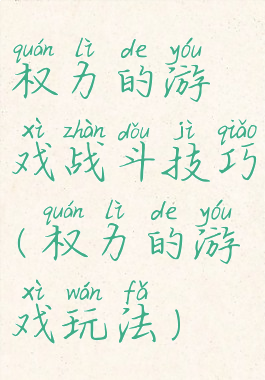 quán lì de yóu
权力的游
xì zhàn dǒu jì qiǎo
戏战斗技巧
quán lì de yóu
(权力的游
xì wán fǎ
戏玩法)